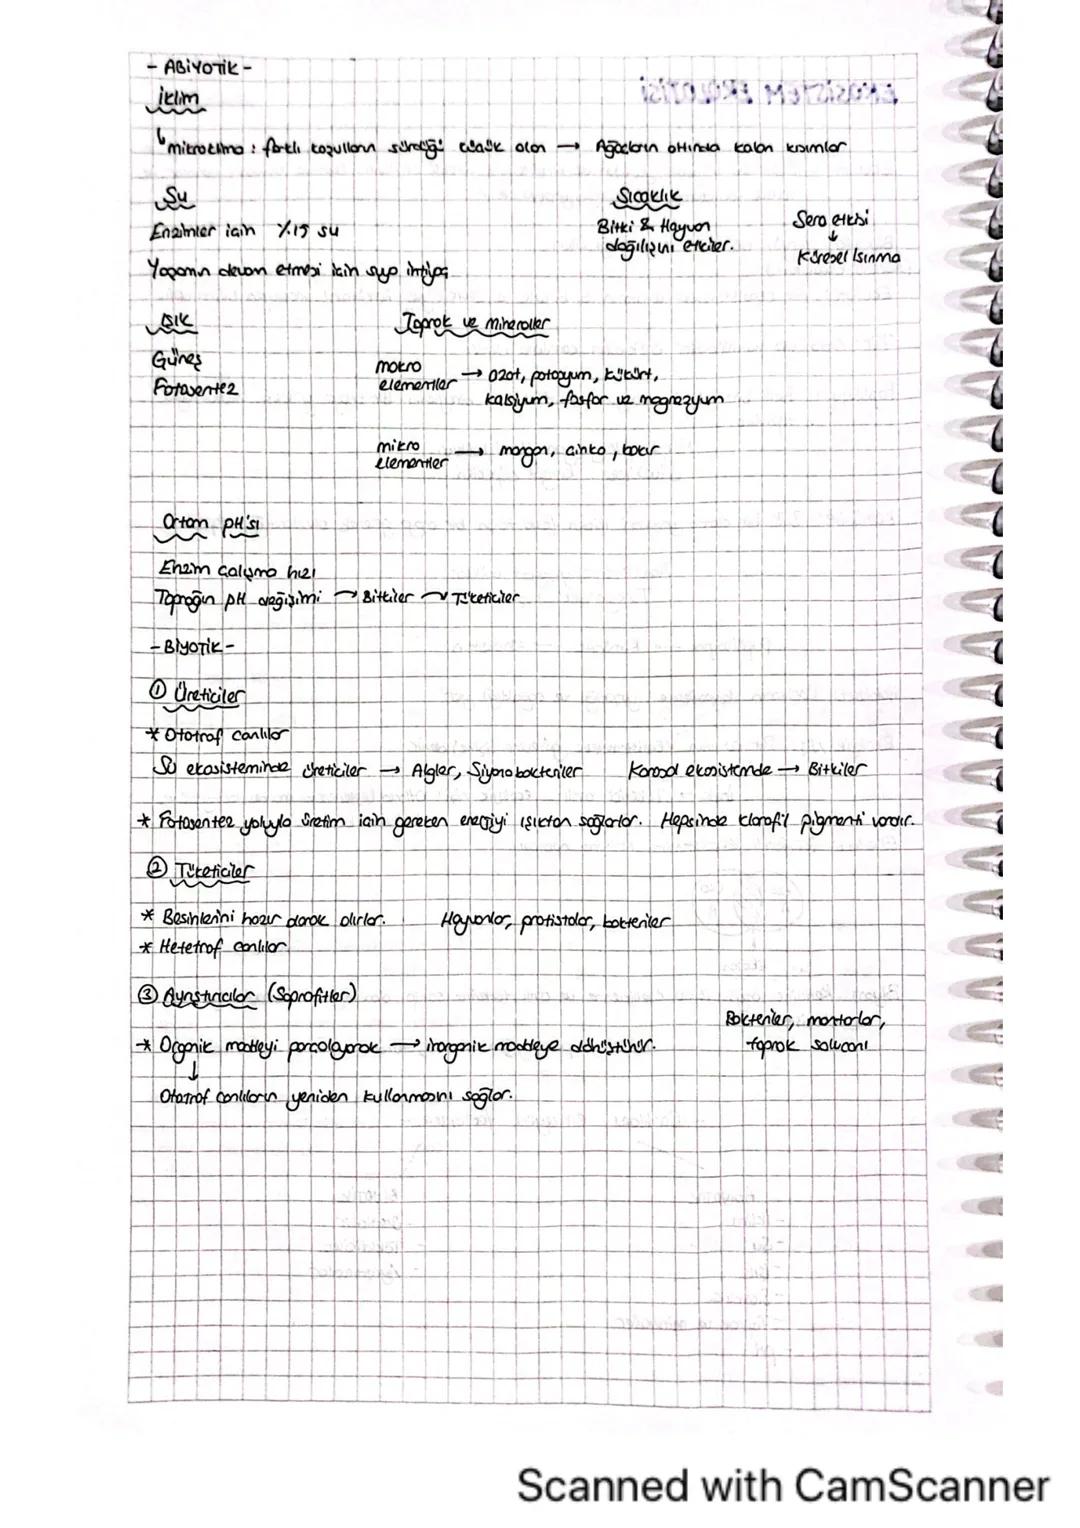 - ABİYOTİK -
İklim
mikroklima : farklı koşulların sürdüğü klasik olan → Ağaçların altında kalan kısımlar
Su
Enzimler için %15 su
Yaşamın devam etmesi için suya ihtiyaç
Sıcaklık
Bitki & Hayvan
dağılışını etkiler.
Sera etkisi
↓
Küresel Isınma
Işık
Güneş
Fotosentez
Toprak ve mineraller
makro
elementler → azot, potasyum, kükürt,
kalsiyum, fosfor ve magnezyum
mikro
elementler → mangan, çinko, bakır
Ortam pH'sı
Enzim çalışma hızı
Toprağın pH değişimi → Bitkiler → Tüketiciler
- BİYOTİK -
① Üreticiler
* Ototrof canlılar
Su ekosisteminde üreticiler → Algler, Siyanobakteriler Karasal ekosistemde → Bitkiler
* Fotosentez yoluyla üretim için gereken enerjiyi ışıktan sağlarlar. Hepsinde klorofil pigmenti vardır.
② Tüketiciler
* Besinlerini hazır olarak alırlar. Hayvanlar, protistalar, bakteriler
* Hetetrof canlılar
③ Ayrıştırıcılar (Saprofitler)
Bakteriler, mantarlar,
toprak solucanı
* Organik maddeyi parçalayarak → inorganik maddeye dönüştürür.
↓
Ototrof canlıların yeniden kullanmasını sağlar.
Scanned with CamScanner